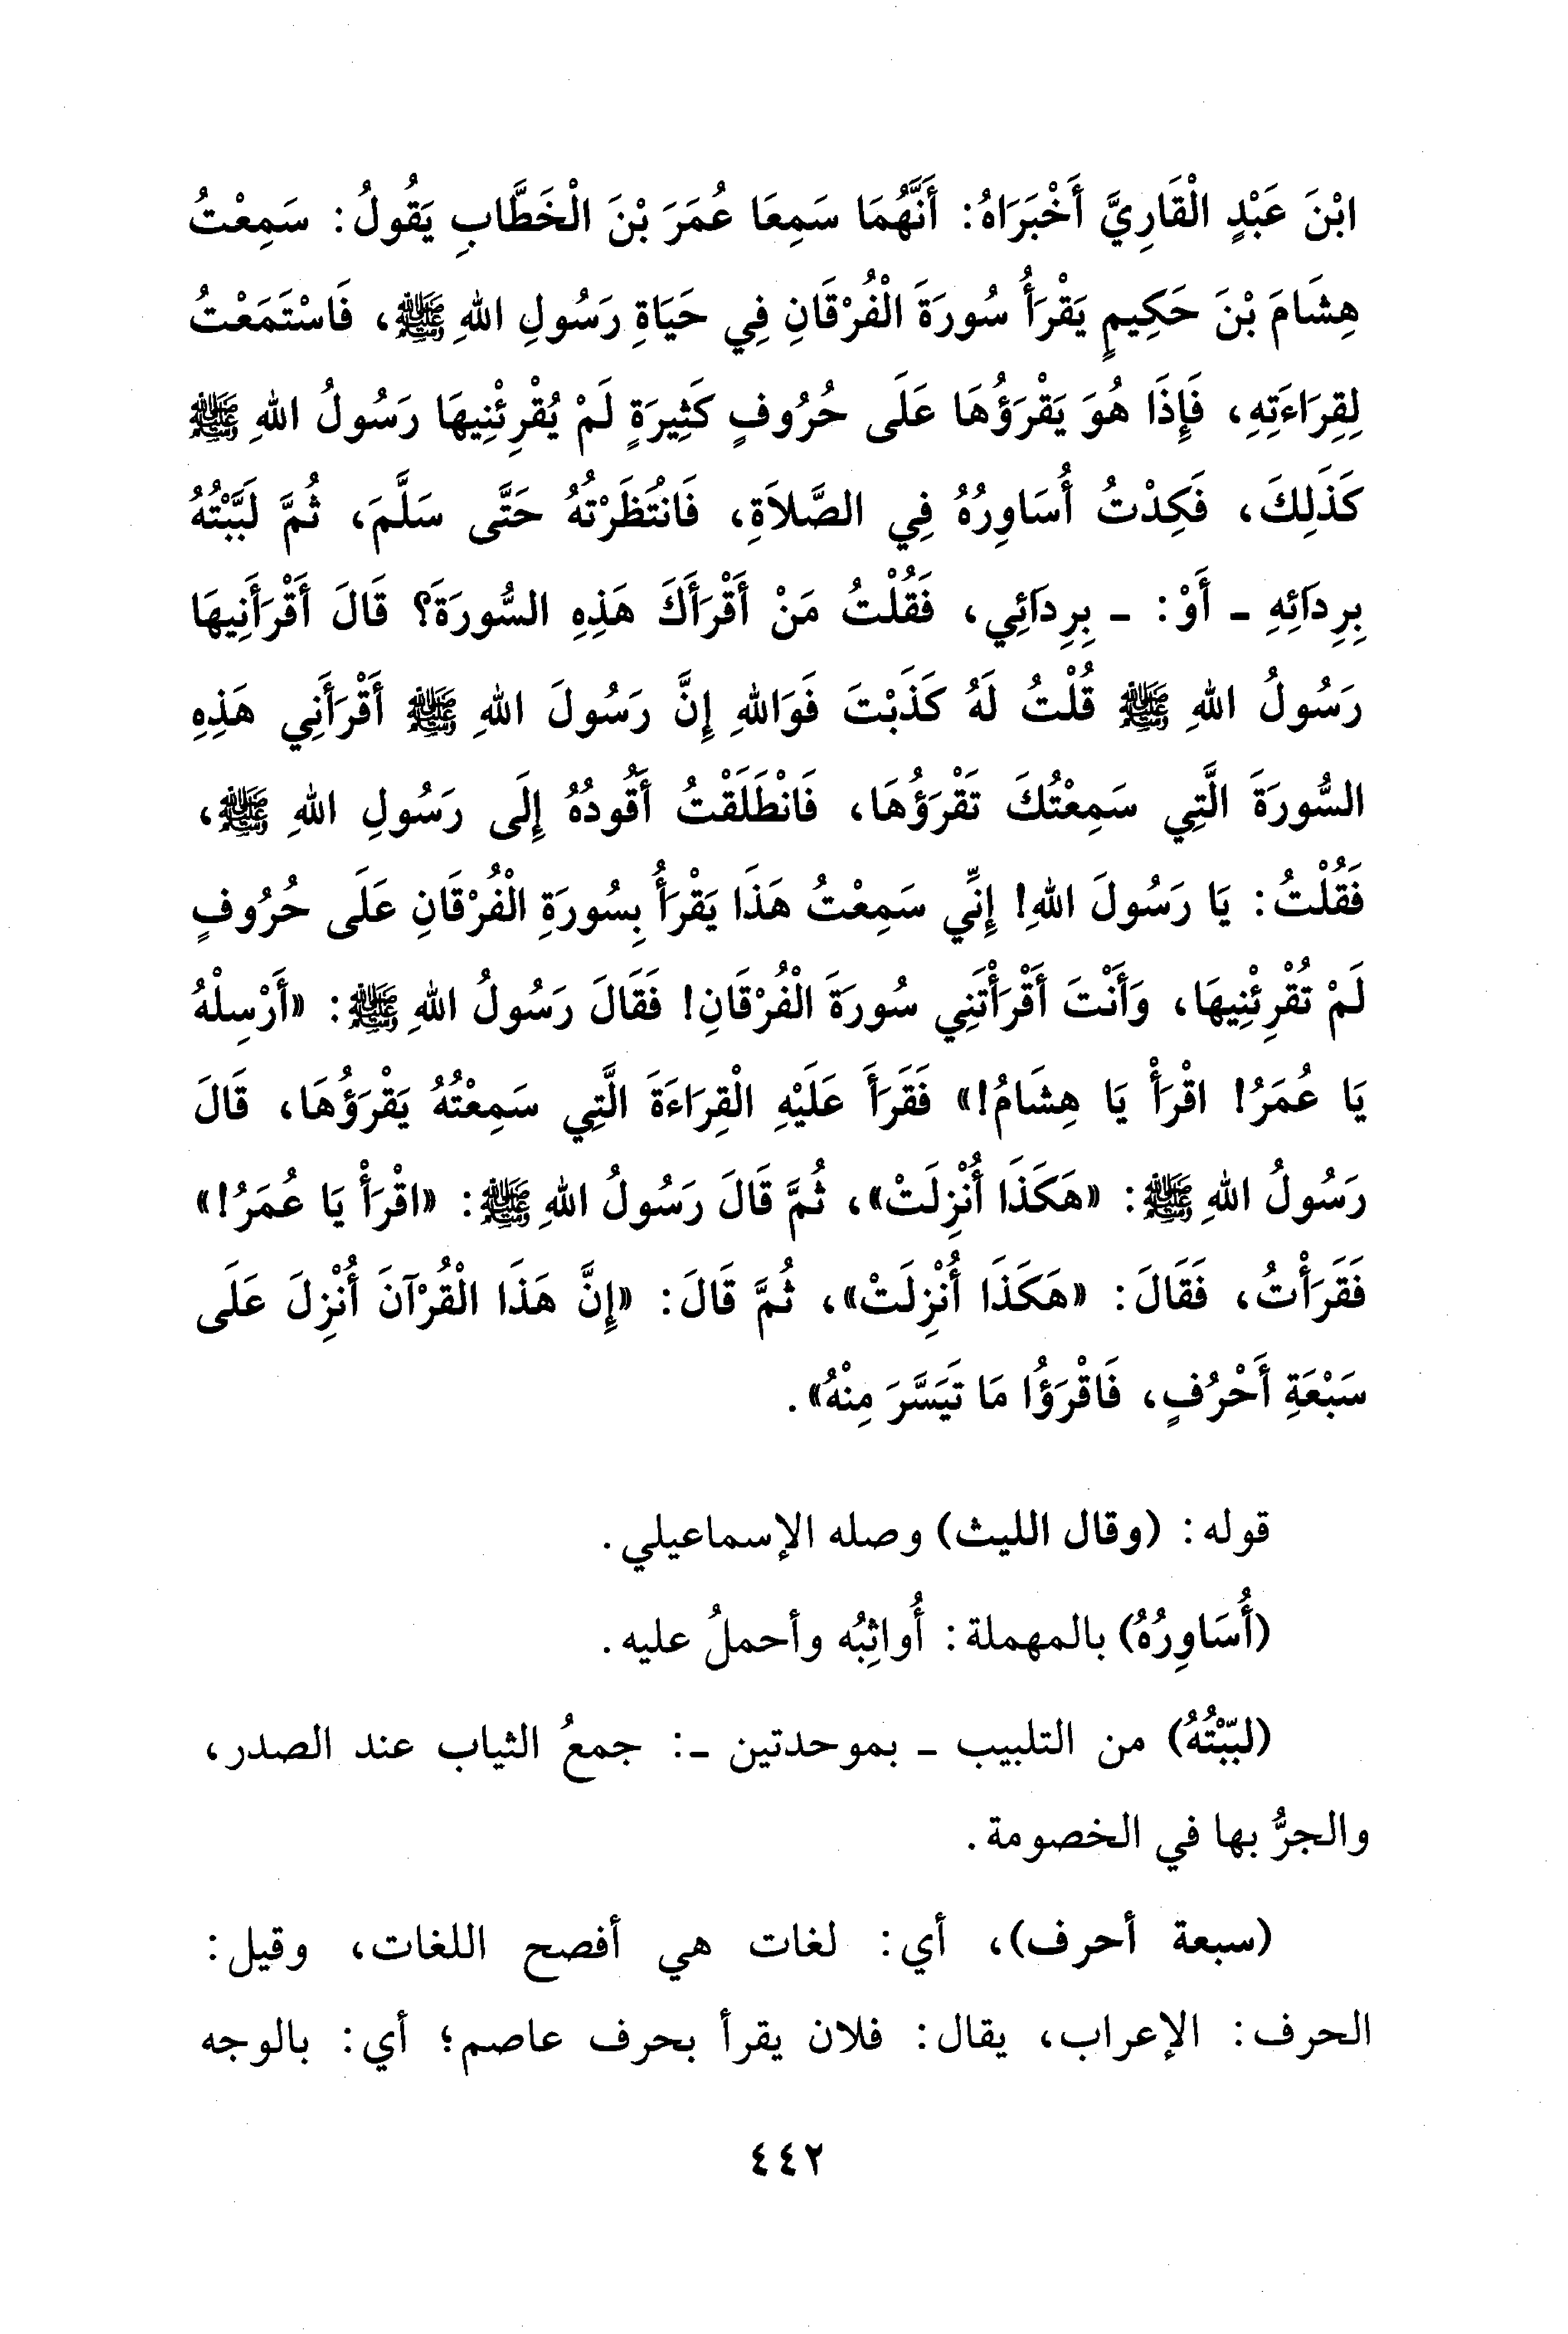 ابْنَ عَبْدٍ الْقَارِيَّ أَخْبَرَاهُ: أَنَّهُمَا سَمِعَا عُمَرَ بْنَ الْخَطَّابِ يَقُولُ: سَمِعْتُ
هِشَامَ بْنَ حَكِيمٍ يَقْرَأُ سُورَةَ الْفُرْقَانِ فِي حَيَاةِ رَسُولِ اللهِ ﷺ، فَاسْتَمَعْتُ
لِقِرَاءَتِهِ، فَإِذَا هُوَ يَقْرَؤُهَا عَلَى حُرُوفٍ كَثِيرَةٍ لَمْ يُقْرِئْنِيهَا رَسُولُ اللهِ ﷺ
كَذَلِكَ، فَكِدْتُ أُسَاوِرُهُ فِي الصَّلاَةِ، فَانْتَظَرْتهُ حَتَّى سَلَّمَ، ثُمَّ لَبَّبْتُهُ
بِرِدَائِهِ ـ أَوْ: ـ بِرِدَائِي، فَقُلْتُ مَنْ أَقْرَأَكَ هَذِهِ السُّورَةَ؟ قَالَ أَقْرَأَنِيهَا
رَسُولُ اللهِ ﷺ قُلْتُ لَهُ كَذَبْتَ فَوَاللهِ إِنَّ رَسُولَ اللهِ ﷺ أَقْرَأَنِي هَذِهِ
السُّورَةَ الَّتِي سَمِعْتُكَ تَقْرَؤُهَا، فَانْطَلَقْتُ أَقُودُهُ إِلَى رَسُولِ اللهِ ﷺ،
فَقُلْتُ: يَا رَسُولَ اللهِ! إِنِّي سَمِعْتُ هَذَا يَقْرَأُ بِسُورَةِ الْفُرْقَانِ عَلَى حُرُوفٍ
لَمْ تُقْرِئْنِيهَا، وَأَنْتَ أَقْرَأْتَنِي سُورَةَ الْفُرْقَانِ! فَقَالَ رَسُولُ اللهِ ﷺ: «أَرْسِلْهُ
يَا عُمَرُ! اقْرَأْ يَا هِشَامُ!» فَقَرَأَ عَلَيْهِ الْقِرَاءَةَ الَّتِي سَمِعْتُهُ يَقْرَؤُهَا، قَالَ
رَسُولُ اللهِ ﷺ: «هَكَذَا أُنْزِلَتْ»، ثُمَّ قَالَ رَسُولُ اللهِ ﷺ: «اقْرَأْ يَا عُمَرُ!»
فَقَرَأْتُ، فَقَالَ: «هَكَذَا أُنْزِلَتْ»، ثُمَّ قَالَ: «إِنَّ هَذَا الْقُرْآنَ أُنْزِلَ عَلَى
سَبْعَةِ أَحْرُفٍ، فَاقْرَؤُا مَا تَيَسَّرَ مِنْهُ».
قوله: (وقال الليث) وصله الإسماعيلي.
(أُسَاوِرُهُ) بالمهملة: أُواثِبُه وأحملُ عليه.
(لبّبْتُهُ) من التلبيب ـ بموحدتين ـ: جمعُ الثياب عند الصدر،
والجرُّ بها في الخصومة.
(سبعة أحرف)، أي: لغات هي أفصح اللغات، وقيل:
الحرف: الإعراب، يقال: فلان يقرأ بحرف عاصم؛ أي: بالوجه
٤٤٢